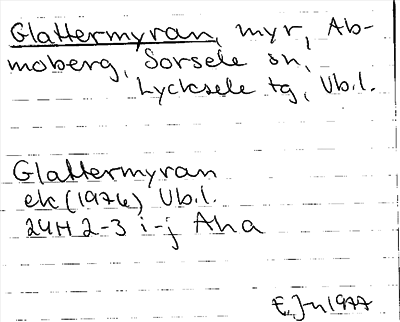 Glattermyran, myr, Ab-
moberg, Sorsele sn,
Lycksele tg, Vb.l.
Glattermyran
ek (1976) Vb.l.
24H 2-3 i-j Aha
E Jn 1977